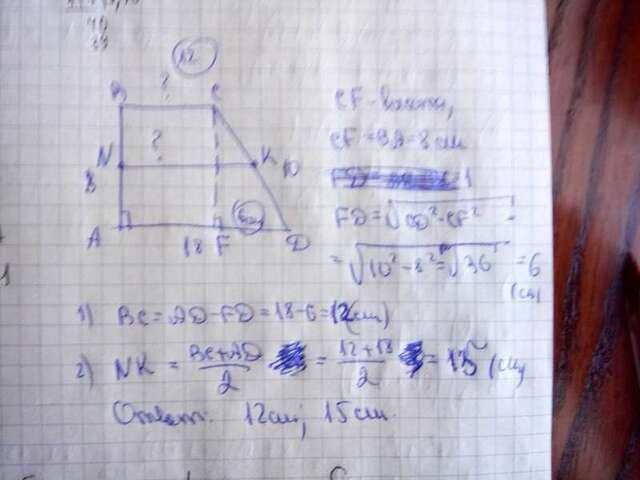 B ? C
12
8 N ? K 10
A 18 F 6см D
CF - высота,
CF = BA = 8 см
FD = √CD² - CF² =
= √10² - 8² = √36 = 6
(см)
1) BC = AD - FD = 18 - 6 = 12 (см)
2) NK = BC + AD / 2 = 12 + 18 / 2 = 15 (см)
Ответ: 12 см, 15 см